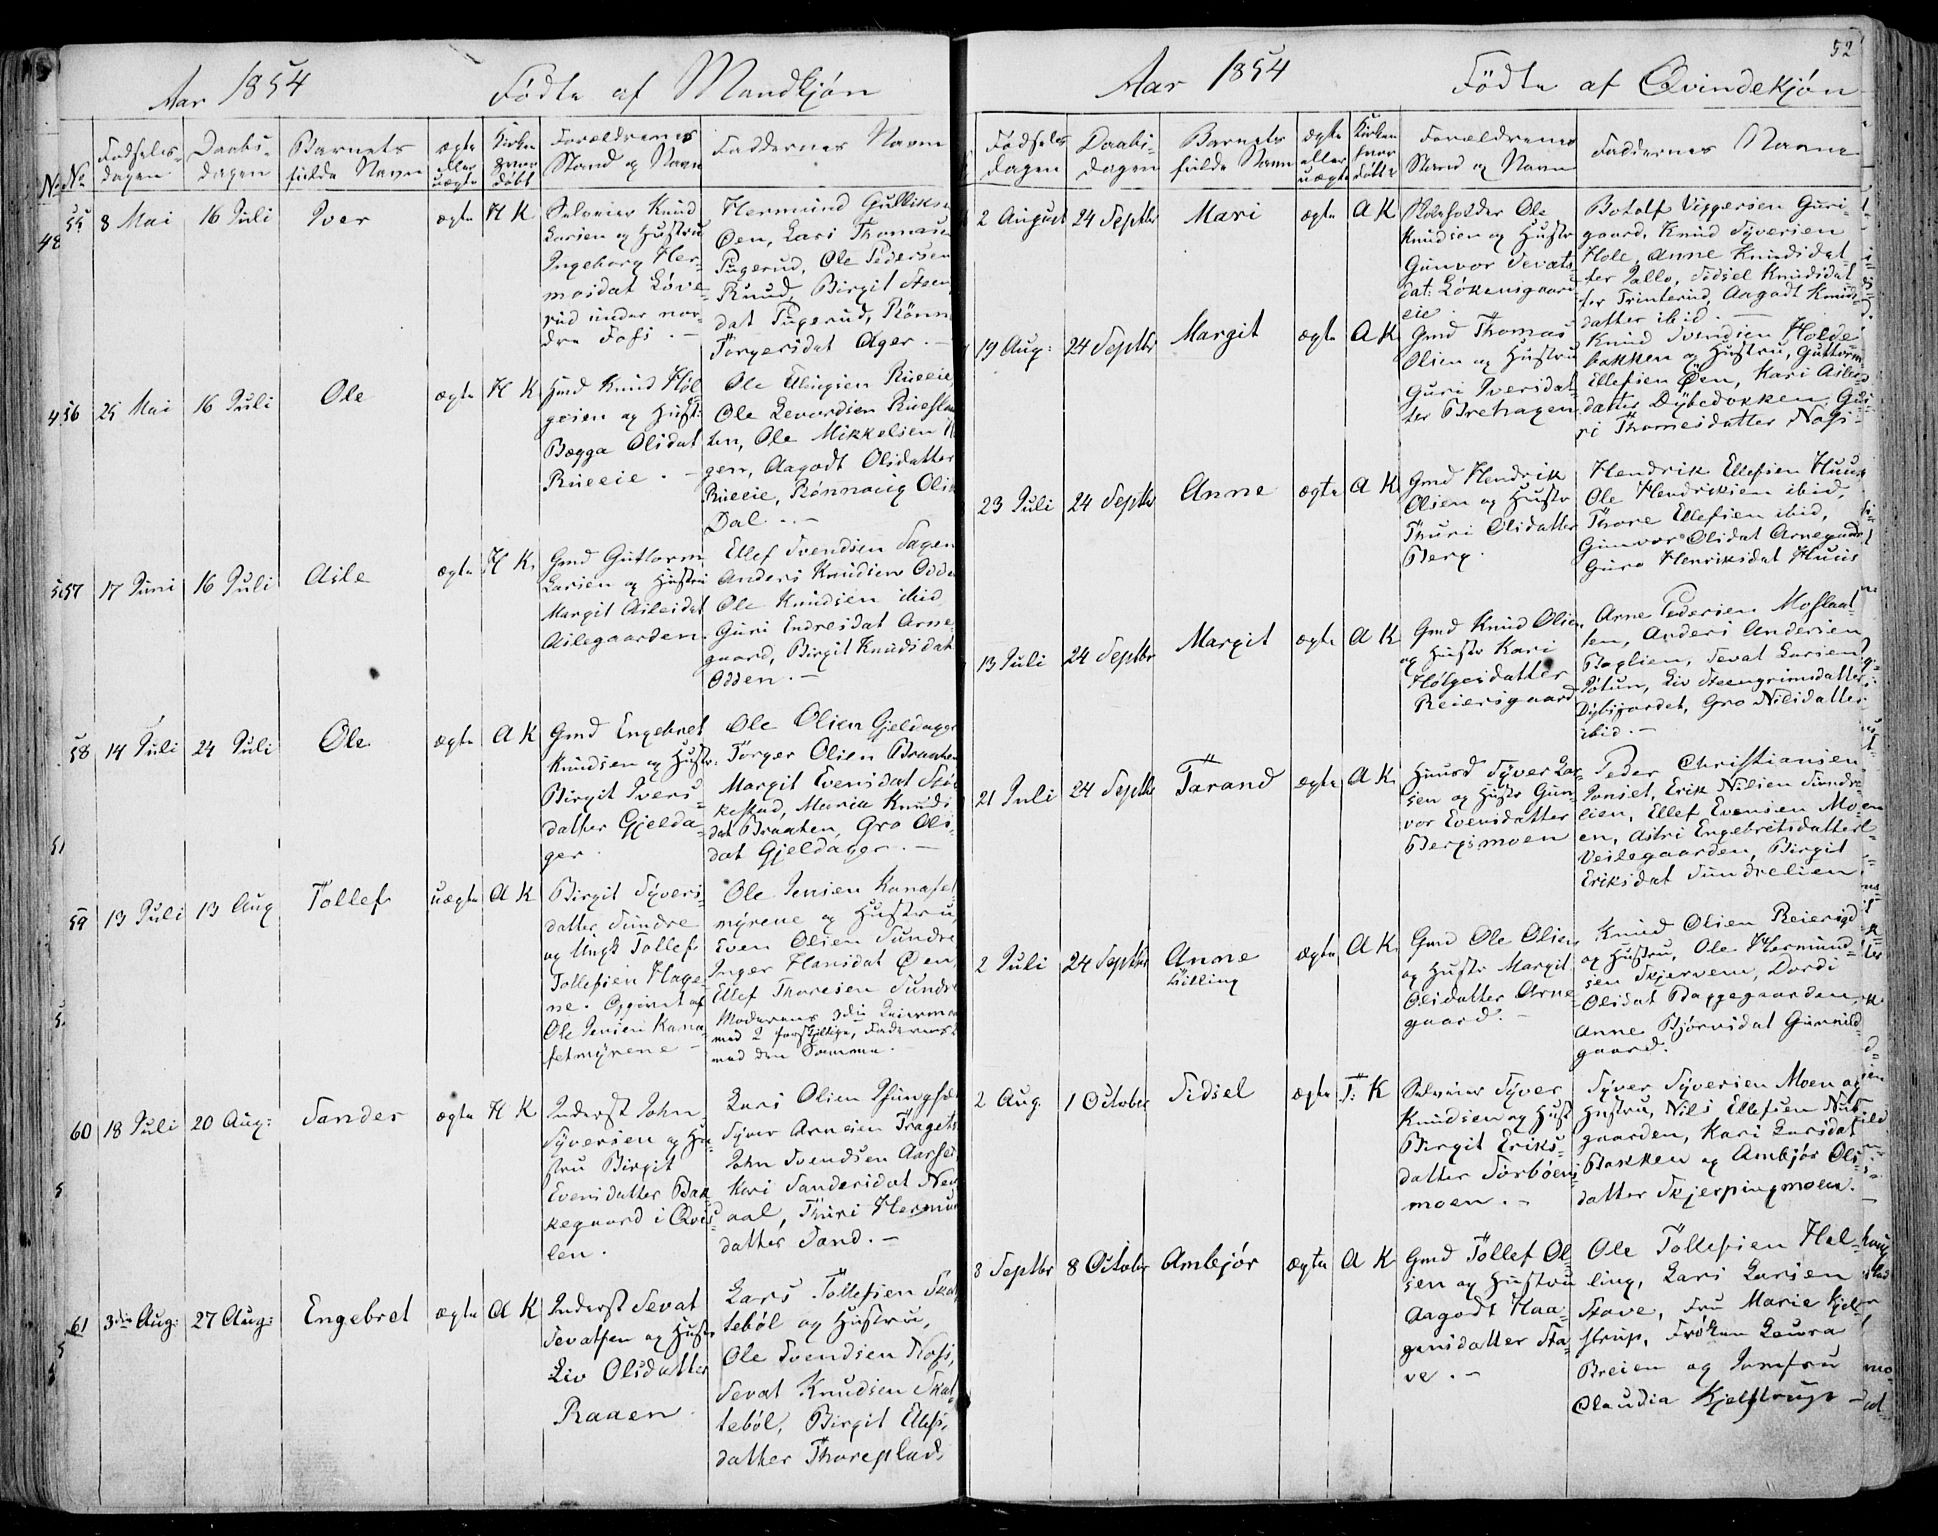 Aar 1854
Födte af Mandkjøn
No
Fødsels-
dagen
Daabs-
dagen
Barnets
fulde Navn
ægte
eller
uægte
Kirken
hvor
döbt
Forældrenes
Stand og Navn
Faddernes Navne
55
8 Mai
16 Juli
Iver
ægte
H K
Selveier Knud
Larsen og Hustru
Ingeborg Her-
mosdat Löve-
rud under nor-
dre
Hermund Gulliks
Øen, Lars Thomas
Pugerud, Ole Pedersen
Ruud, Birgit
dat Pugerud, Rönn
Torgersdat Ager. —
56
25 Mai
16 Juli
Ole
ægte
H K
Gmd Knud Hol-
gesen og Hust:
Bægga Olsdat
Rueeie. —
Ole Ellingsen Rueeie,
Ole Levordsen
ten, Ole Mikkelsen
gen, Aagodt Olsdatter
Rueeie, Rönnaug Ols
Dal. —
57
17 Juni
16 Juli
Asle
ægte
H K.
Gmd Guttorm
Larsen og Hustru
Margit Aslesdat
Aslegaarden.
Ellef Svendsen Hagen
Anders Knudsen Odde
Ole Knudsen ibid,
Guri Endresdat Arne-
gaard, Birgit Knudsdat
Odden. —
58
14 Juli
24 Juli
Ole
ægte
A K
Gmd Engebret
Knudsen og Hustr:
Birgit Ivers-
datter Gjelda-
ger.
Ole Olsen Gjeldager
Torger Olsen Braaten
Margit Evensdat Stöc
kestad, Maria Knuds
dat Braaten, Gro Ols-
dat Gjeldager. —
59
13 Juli
13 Aug
Tollef
uægte
A K
Birgit Syvers-
datter Sundre
og Ungk Tollef
Tollefsen Hage-
ne. Opgivet af
Ole Jensen Kana-
fetmyrene —
Ole Jensen Kanafet
myrene og Hustru,
Even Olsen Sundre
Inger Hansdat Øen,
Ellef Thoresen Sundre
Moderens 3die Leiermaal
med 2 forskjellige, Faderens
med den Samme. —
60
18 Juli
20 Aug:
Sander
ægte
H K
Inderst John
Syversen og Hu-
stru Birgit
Evensdatter Bak
kegaard i Qvis-
len.
Lars Olsen
Syver Arnesen Traget
John Svendsen
Kari Sandersdat
aal, Thuri Hermu
datter Sand. —
61
3die Aug:
27 Aug:
Engebret
ægte
A K
Inderst Sevat
Sevatsen og Hustr
Liv Olsdatter
Raaen.
Lars Tollefsen Skat
teböl og Hustru,
Ole Svendsen
Sevat Knudsen Skat
teböl, Birgit Ellefs-
datter Thoreplads
Aar 1854
Födte af Qvindekjön
52
Fødsels
dagen
Daabs-
dagen
Barnets
fulde Navn
ægte
eller
uægte
Kirken
hvor
döbte
Forældrenes
Stand og Navn
Faddernes Navne
2 August
24 Septbr
Mari
ægte
A K
Skoleholder Ole
Knudsen og Hustr
Gunvor Sevats-
dat: Lökensgaard
eie.
Botolf Viggersen Guri-
gaard, Knud Syversen
Hole, Anne Knudsdat-
ter Pallo, Sidsel Knudsdat
ter Trinterud, Aagodt Knuds
datter ibid. —
19 Aug:
24 Septbr
Margit
ægte
A K
Gmd Thomas
Olsen og Hustru
Guri Iversdat-
ter Brehagen
Knud Svendsen Holde
bakken og Hustru, Guttorm
Ellefsen Öen, Kari Asles
datter Dybedokken, Gu-
ri Thomesdatter
23 Juli
24 Septbr
Anne
ægte
A K
Gmd Hendrik
Olsen og Hustr
Thuri Olsdatter
Berg.
Hendrik Ellefsen Huus
Ole Hendriksen ibid,
Thore Ellefsen ibid,
Gunvor Olsdat Arnegaard
Guro Henriksdat Huus
13 Juli
24 Septbr
Margit
ægte
A K
Gmd Knud Olsen
og Hustr Kari
Holgesdatter
Reiersgaard
Arne Pedersen Moslaat-
ten, Anders Andersen
Baglien, Sevat Larsen
Jotun, Liv Steengrimsdatter
Dybsjordet, Gro Nilsdatter
ibid. —
21 Juli
24 Septbr
Tarand
ægte
A K
Huusd Syver Lar-
sen og Hustr Gun-
vor Evensdatter
Bergsmoen
Peder Christiansen
Jonset, Erik Nilsen Sundre-
lien, Ellef Evensen Moen
en, Astri Engebretsdatter
Veslegaarden, Birgit
Eriksdat Sundrelien
2 Juli
24 Septbr
Anne
Tvilling
ægte
A K
Gmd Ole Olsen
og Hustr Margit
Olsdatter Arne
gaard —
Knud Olsen Reiersgd
og Hustru, Ole Hermund-
sen Skjervem, Dordi
Olsdat Baggegaarden,
Anne Bjørnsdat Gunnild-
gaard.
2 Aug.
1 October
Sidsel
ægte
T: K
Selveier Syver
Knudsen og Hust
Birgit Eriks-
datter Torböens
moen. —
Syver Syversen Moen og
Hustru, Nils Ellefsen Nub
gaarden, Kari Larsdat
Bakken og Ambjør Ols-
datter Skjerpingmoen.
3 Septbr
8 October
Ambjör
ægte
A K
Gmd Tollef Ol-
sen og Hustru
Aagodt Haa-
gensdatter Sta-
ve. —
Ole Tollefsen Hel-
ling, Lars Larsen
Stave, Fru Marie Kjel-
strup, Fröken Laura
Breien og Jomfru
Claudia Kjelstrup —